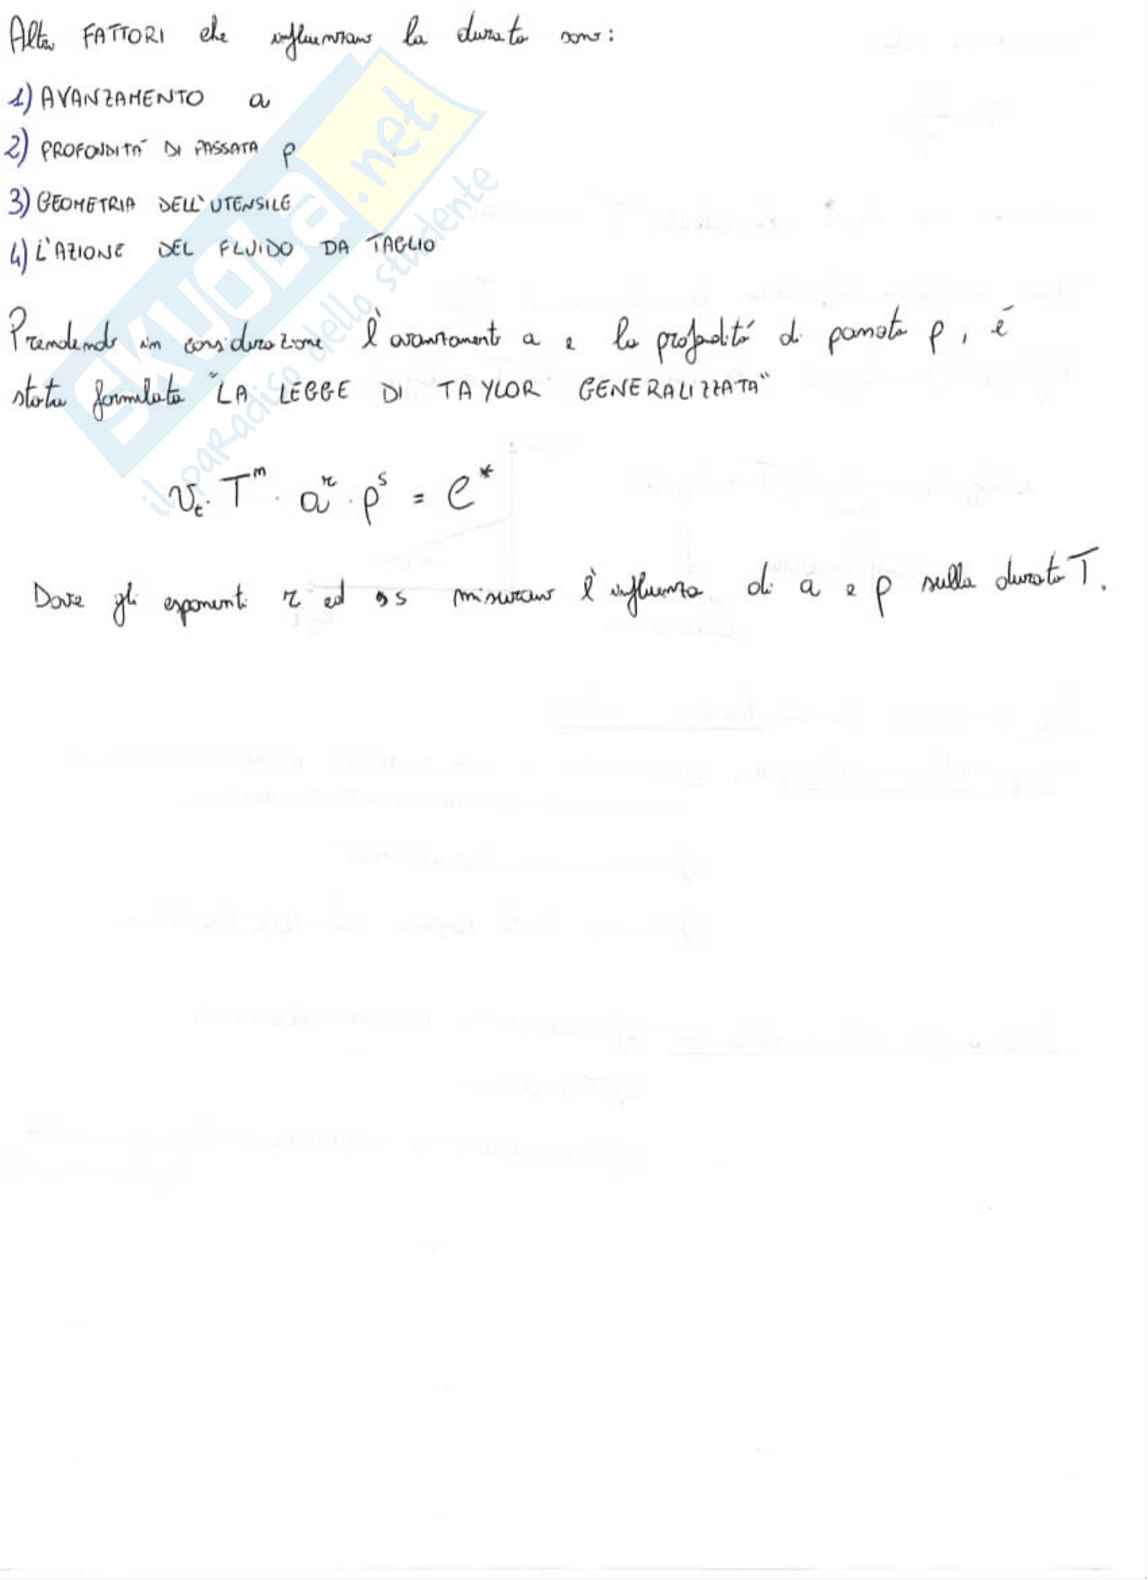 Altri FATTORI che influenzano la durata sono:
1) AVANZAMENTO a
2) PROFONDITÁ DI PASSATA p
3) GEOMETRIA DELL'UTENSILE
4) L'AZIONE DEL FLUIDO DA TAGLIO
Prendendo in considerazione l'avanzamento a e la profondità di passata p, é
stata formulata "LA LEGGE DI TAYLOR GENERALIZZATA"
v_t · T^m · a^r · p^s = C*
Dove gli esponenti r ed s misurano l'influenza di a e p sulla durata T.
SKUOLA.net
il paradiso dello studente